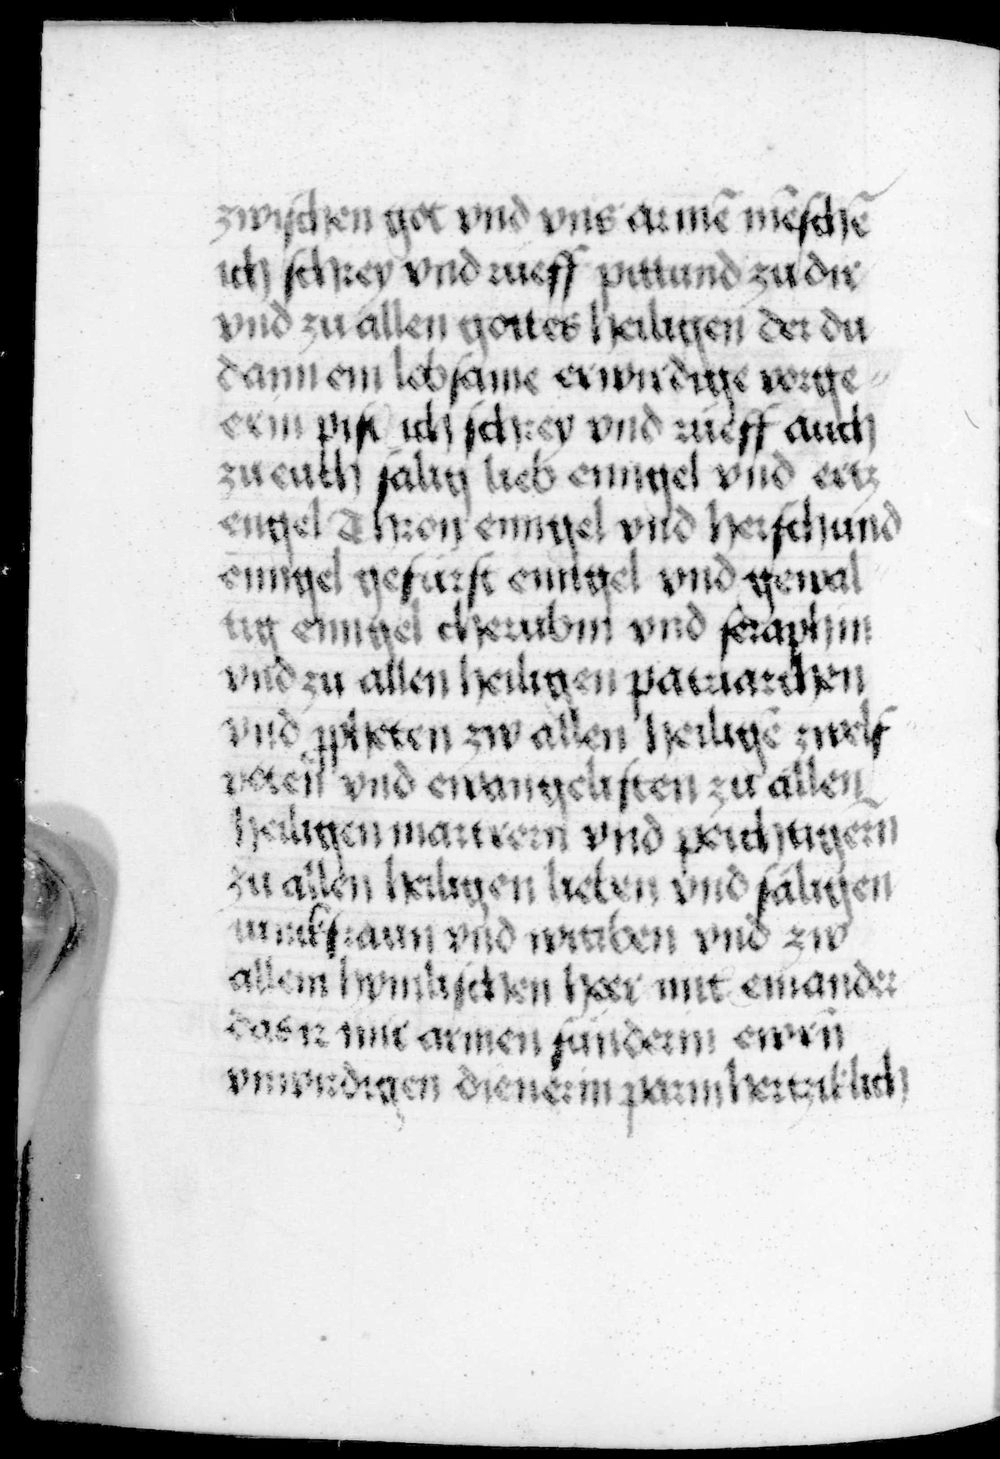 zwischen got vnd vns armē mēschē
ich schrey vnd rueff pittund zu dir
vnd zu allen gottes heiligen der du
dann ein lobsame erwirdige vorge
erin pist ich schrey vnd rueff auch
zu euch sälig lieb enngel vnd ertz
engel Thron enngel vnd herschund
enngel gefürst enngel vnd gewal
tig enngel cherubin vnd seraphin
vnd zu allen heiligen patriarchen
vnd ꝓpheten zw allen heiligē zwelf
poten vnd ewangelisten zu allen
heiligen martrern vnd peichtigern
zu allen heiligen lieben vnd säligen
iunckfraun vnd wittiben vnd zw
allem hymlischen heer mit einander
das ir mir armen sünderin ewrn
vnwirdigen dienerin parmhertziklich